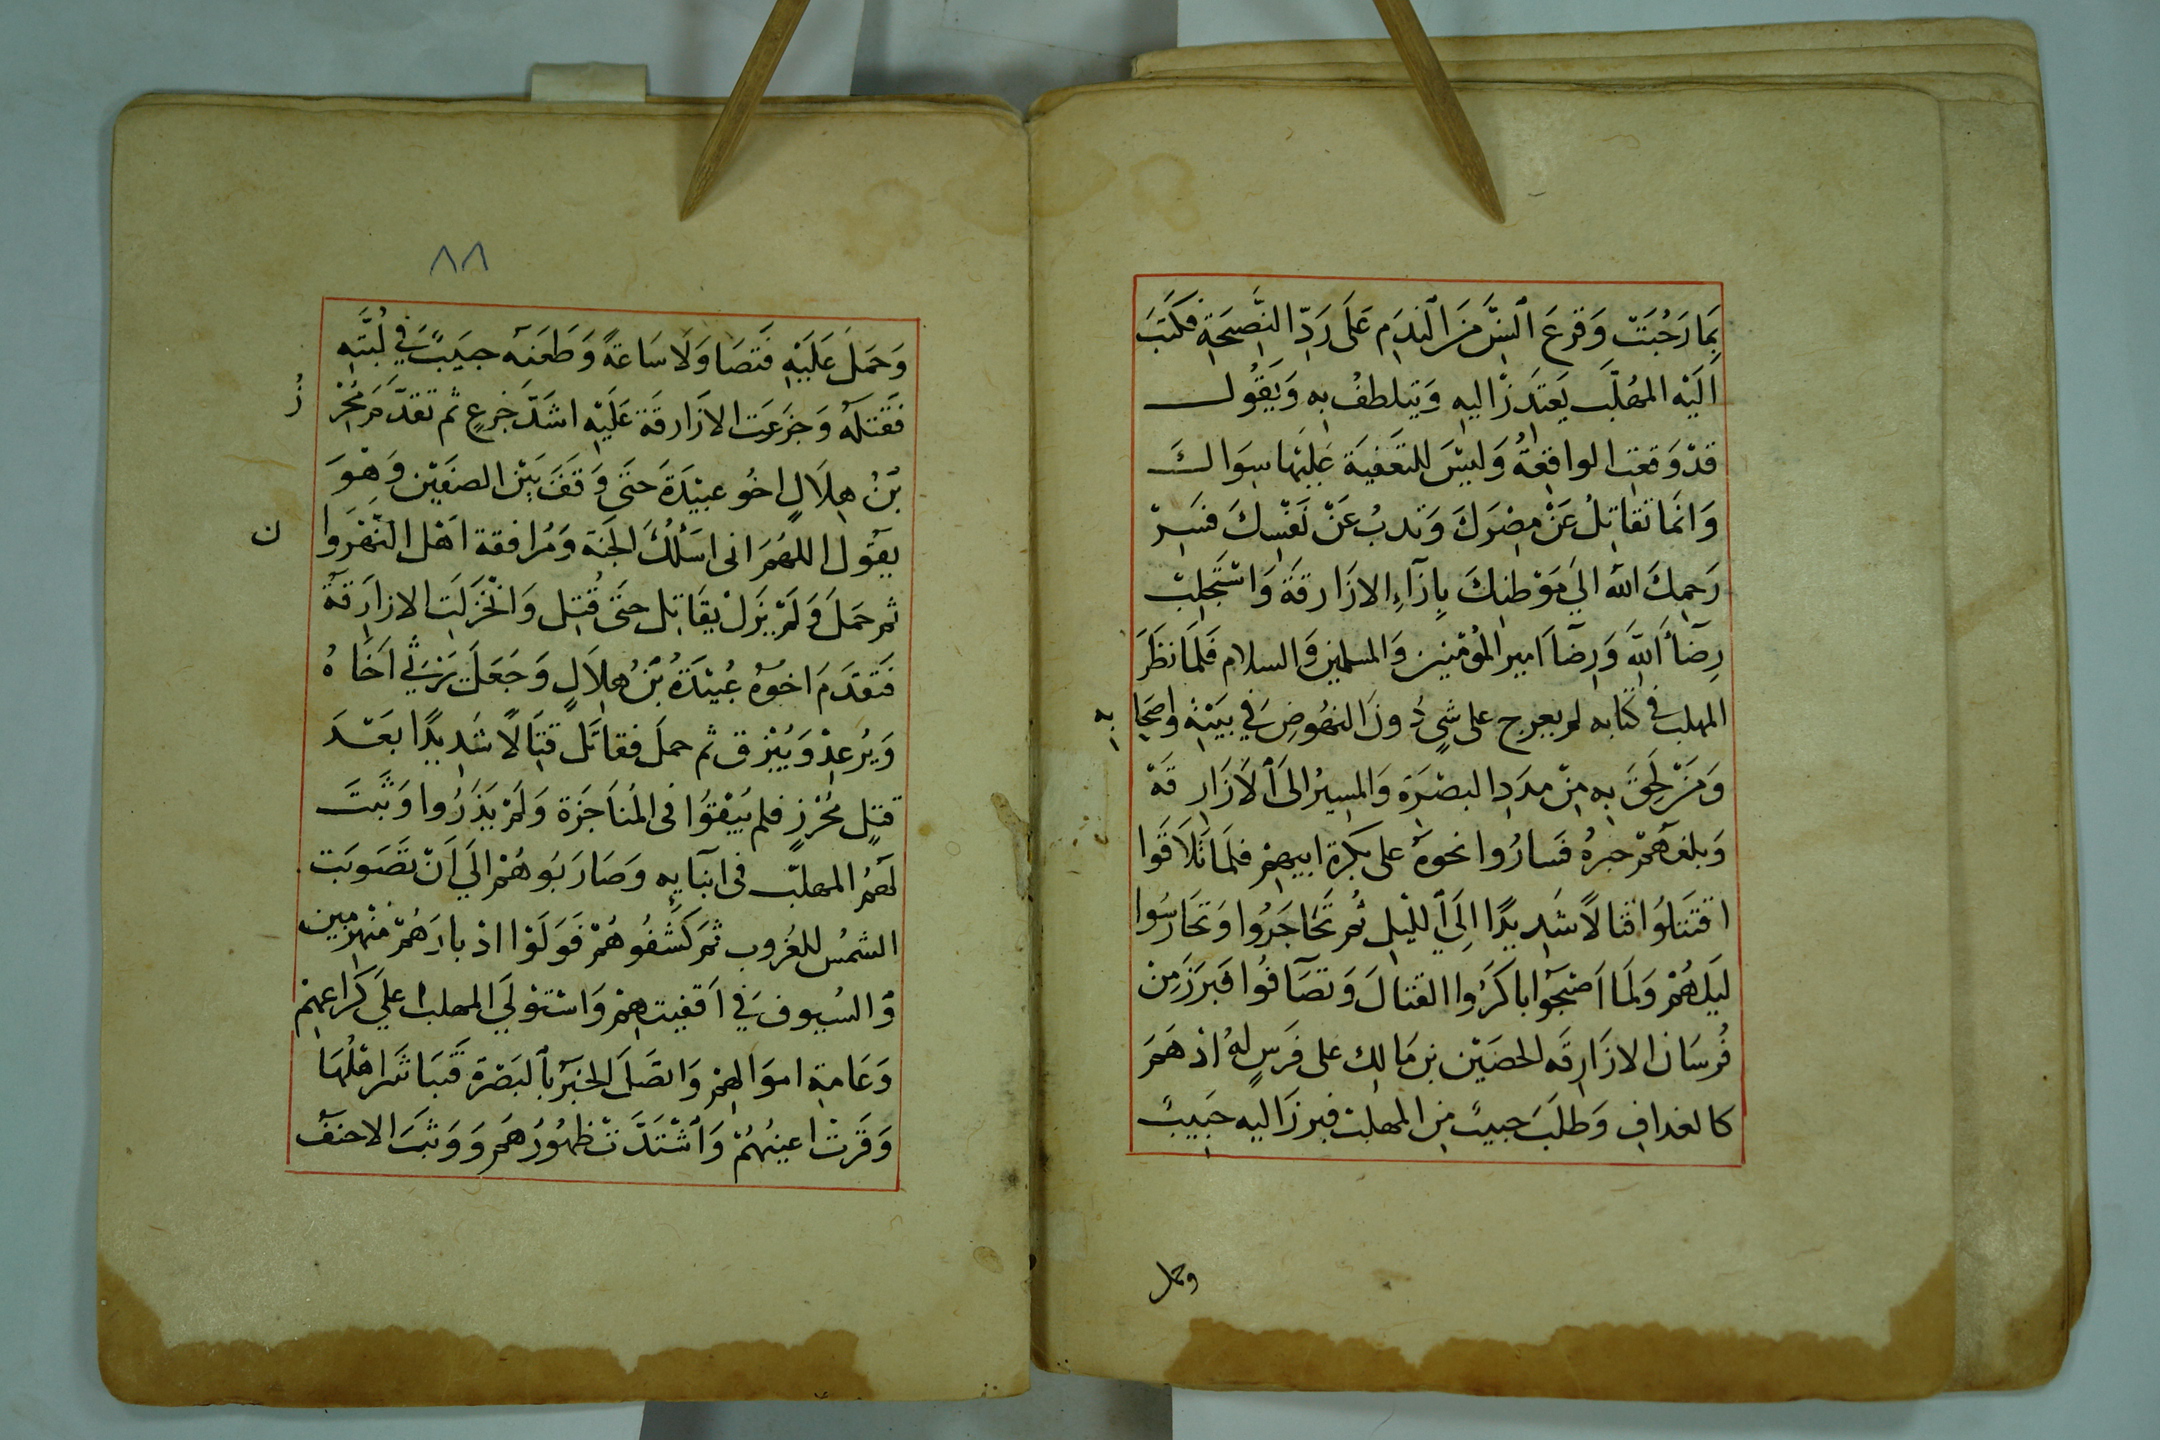 بِمَا رَحُبَتْ وَقَرعَ السِّنَّ مَنَ النَدَمِ عَلَى رَدِّ النَّصِيحَةِ فَكَتَبَ
اِلَيْهِ المهُلّبُ يَعتَذرْ اليهِ وَيَتلطفْ بهِ وَيَقُول
قدْ وَقعَتِ الواقِعةُ وَليْسَ للتعَفيَة عَليْهَا سِوَاكَ
وَانَما تقاتِلُ عَنْ مِصْرَكَ وَتدبُ عَنْ نَفْسِكَ فسِرْ
رَحِمكَ اللّه الىَ مَوْطِنِكَ بِازآءِ الازَارقَة وَاسْتَجلِبْ
رِضآءَ اللّهِ وَرِضآءَ امير المؤمنين وَالمسلمين وَالسلام فَلمَا نظَرَ
المهلبُ فى كتَابه لم يعرج على شىٍ دُونَ النهُوضِ فِي بَيَتهِ وَاصحَابه
وَمَنْ لَحِقَ بِهِ مِنْ مدَدِ البصْرَة وَالمسِيرُ الىَ الاَزَارِقَة
وَبلغهَمْ خبرهُ فَسارُوا نحوهُ على بكرَة ابيهِمْ فلمَا تَلاَقَوا
اقتَتلوُا قتالاً شَدِيدًا اِلَى الليْلِ ثُمر تحَاجَزُوا وَتحَارَسُوا
لَيلهُمْ وَلَما اَصْبَحُوا باكَرُوا القتالَ وَتصَآفوُا فبَرَزَ مِنْ
فُرسَان الازَارقَه الحصَيْن بن مَالِك على فَرَسٍ لهُ ادْهَمَ
كالغدافِ وَطلَبَ حبيبُ بن المهلبْ فبرزَ اليهِ حَبِيبُ
وحمل
٨٨
وَحَمَلَ عَلَيْهِ فَتصَاوَلَا سَاعةً وَطَعَنه حبيَبُ فى لُبَّتِهِ
فَقَتَلهُ وَجَزعَت الازَارقَة عَلَيْهِ اشَدّ جَزعٍ ثم تقدَّمَ مُحْرُز
بْنُ هِلَالٍ اخُو عبيْدَةَ حَتَى وَقَفَ بَيْن الصفَيْن وَهْوَ
يقَوُل اللهُمَ انى اسْئلُكَ الجَنة وَمُرافقة اهْل النّهْرَوان
ثمر حَمَلَ وَلَمْ يزَلْ يقَاتِل حتَّى قُتِل وَانْخَزَلَتِ الازارَقةُ
فَتقدَمَ اخوُهُ عُبيْدَةُ بْنُ هِلَالٍ وَجَعَلَ يَرثي اَخَاهُ
وَيُرعِدْ وَيُبْرق ثم حملَ فقاتَل قتِالاً شَدِيدًا بعَدَ
قتلِ مُحْرْزٍ فلم يبَيْقوُا فى المُناجَزة وَلَمْ يذَرُوا وَثَبَتَ
لَهُمُ المهلبّ فى ابنآيهِ وَصَارَبوُهُمْ الَي اَنْ تصَوبَت
الشمْسُ للغُروب ثمَر كشَفُوهُمْ فَوَلَوْا ادْبارَهُمْ مُنْهزِمين
وَالسُيوف في اَقفيتهِمْ وَاسْتوْلَي المهلبُ علَي كرَاعِهِمْ
وَعَامةِ اموَالِهمْ وَاتصَلَ الخبَرُ بالبَصْرَة فَتبَاشَرَ اهْلُهَا
وَقرَتْ اعينُهُمْ وَاشْتَدَّتْ ظهُورُهَمَ وَوَثبَ الاحنفُ